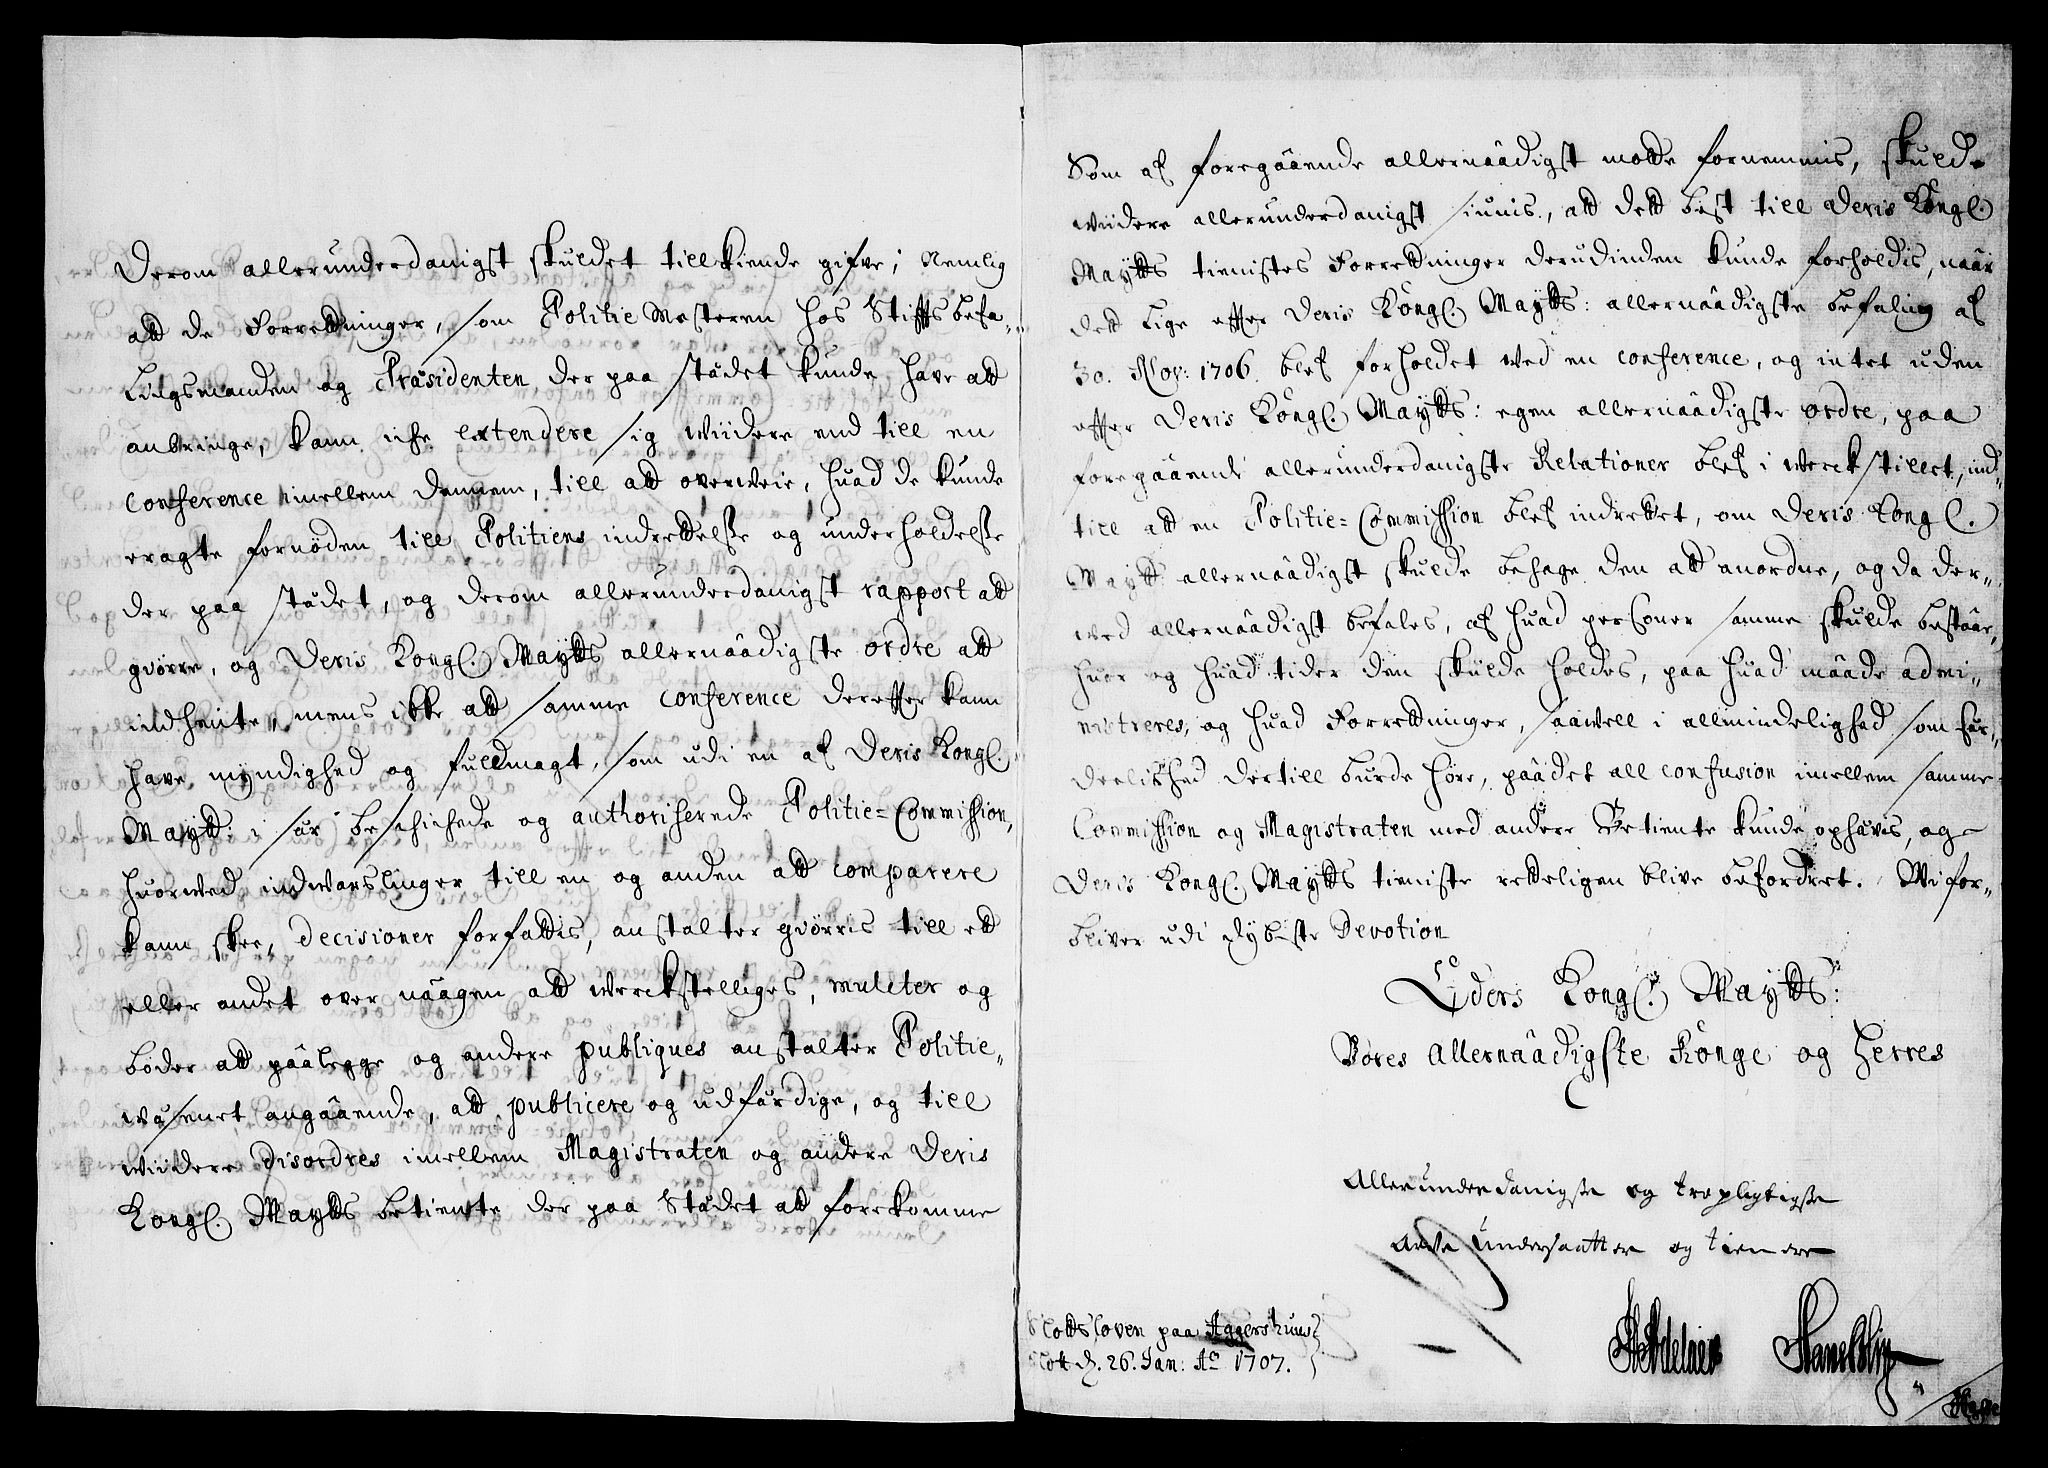 Derom allerunderdanigst skuldet tillkiende gifve; Nemlig
att de Forretninger, som Politie Mesteren hos Stifftsbefa-
lingsmanden og Præsidenten der paa stædet kunde have att
anbringe, kann iche extendere sig widere end till en
Conference imellem dennem, till att overveie, huad de kunde
eragte fornöden till Politiens indrettelsse og underholdelsse
der paa stædet, og derom allerunderdanigst rapport att
giörre, og Deris Kongl. Maytts allernaadigste ordre att
indhente, mens ikke att samme Conference dereffter kann
have myndighed og fuldmagt, som udi en af Deris Kongl.
Maytt: sær beschichede og authoriserede Politie-Commission,
huorved indvarslinger till en og anden att comparere
kann skee, decisioner forfattis, anstalter giörris till et
eller andet over naagen att werckstelliges, mulcter og
böder att paalegge og andre publiques anstalter Politie-
wæsenet angaaende, att publicere og udfærdige, og till
widere disordres imellem Magistraten og andre Deris
Kongl. Maytts betiente der paa Stædet att forekomme
Som af foregaaende allernaadigst motte fornemmis, skulde
widere allerunderdanigst siunis, att dett best till Deris Kongl.
Maytts tienistes Forretninger derudinden kunde forholdis, naar
dett lige effter Deris Kongl. Maytts: allernaadigste befaling af
30. Nov: 1706. blef forholdet ved en conference, og intet uden
effter Deris Kongl. Maytts: egen allernaadigste ordre, paa
foregaaende allerunderdanigste Relationer blef i werckstillet, ind-
till att en Politie-Commission blef indrettet, om Deris Kongl.
Maytt allernaadigst skulde behage den att anordne, og da der-
ved allernaadigst befales, af huad personer samme skulde bestaae,
huor og huad tider den skulde holdes, paa huad maade admi-
nistreres, og huad Forretninger, saavell i allmindelighed som sær-
deelished dertill burde höre, paadet all confusion imellem samme
Commission og Magistraten med andre Betiente kunde ophævis, og
Deris Kongl. Maytts tieniste retteligen blive befordret. Wi for-
bliver udi dybiste Devotion
Eders Kongl. Maytts:
Vores Allernaadigste Konge og Herres
Allerunderdanigste og troepligtigste
Arfve Undersaatter og tienere
Slotts loven paa Aggershuus
Slott d. 26. Jan: Ao 1707.